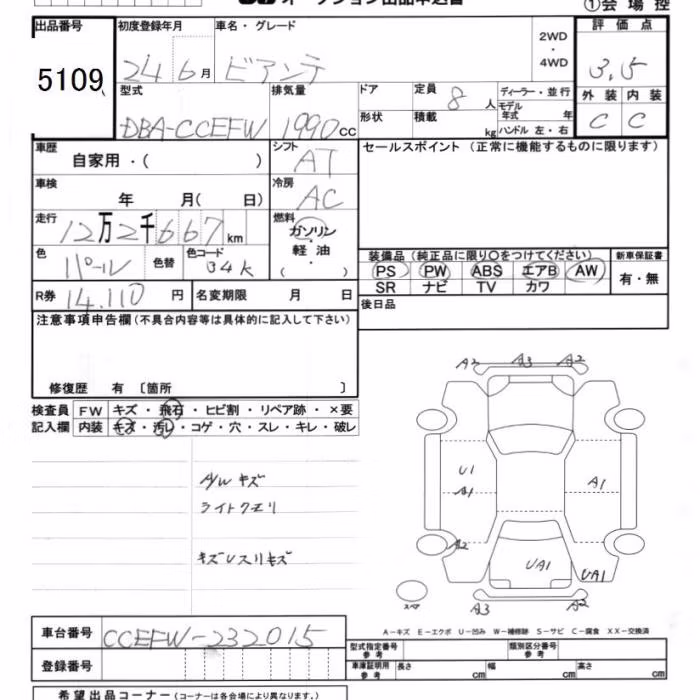 ①会場控
出品番号 初度登録年月 車名・グレード 2WD・4WD 評価点
5109 24 6月 ビアンテ 3,5
型式 排気量 ドア 定員 8人 ディーラー・並行 外装 内装
DBA-CCEFW 1990cc 形状 積載 kg モデル年式 年 C C
ハンドル 左・右
車歴 シフト セールスポイント (正常に機能するものに限ります)
自家用・( ) AT
車検 冷房
年 月( 日) AC
走行 燃料
12万2千667km ガソリン
軽油
( ・ )
色 色替 色コード 装備品 (純正品に限り○をつけてください) 新車保証書
パール 34K PS PW ABS エアB AW 有・無
R券 14,110円 名変期限 月 日 SR ナビ TV カワ
注意事項申告欄(不具合内容等は具体的に記入して下さい) 後日品
修復歴 有 〔箇所 〕
検査員 FW キズ・飛石・ヒビ割・リペア跡・×要
記入欄 内装 キズ・汚レ・コゲ・穴・スレ・キレ・破レ
A2 A3 A2
A/W キズ
ライトクモリ
キズUスリキズ
U1
A1 A1
A2
UA1 UA1
スペア
A3 A2
A-キズ E-エクボ U-凹み W-補修跡 S-サビ C-腐食 XX-交換済
車台番号 CCEFW-232015
型式指定番号 参考 類別区分番号 参考
登録番号 車庫証明用 参考 長さ cm 幅 cm 高さ cm
希望出品コーナー(コーナーは各会場により異なります。)